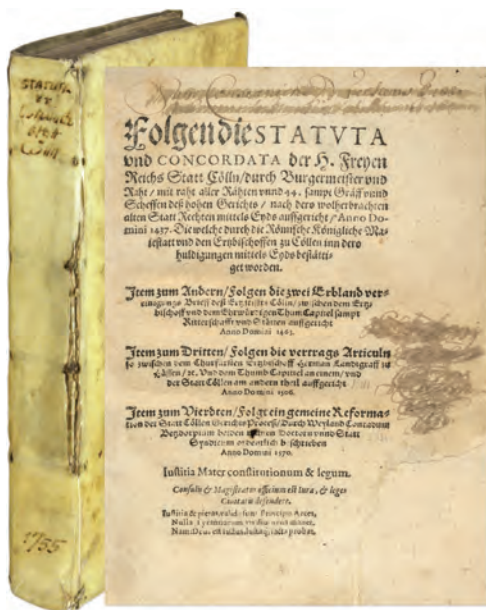 STATUTA
et
1755
Folgen die STATVTA
vnd CONCORDATA der H. Freyen
Reichs Statt Cölln/durch Burgermeister vnd
Raht/mit raht aller Rähten vnnd 44. sampt Gräff vnnd
Scheffen deß hohen Gerichts/nach dero wolherbrachten
alten Statt Rechten mittels Eyds auffgericht/Anno Do-
mini 1437. Die welche durch die Römische Königliche Ma-
iestatt vnd den Ertzbischoffen zu Cöllen inn dero
huldigungen mittels Eyds bestätti-
get worden.
Item zum Andern/Folgen die zwei Erbland ver-
einigungs Brieff deß Ertzstiffts Cölln/zwischen dem Ertz-
bischoff vnd dem Ehrwürdigen Thum Capitel sampt
Ritterschafft vnd Stätten auffgericht
Anno Domini 1463.
Item zum Dritten/Folgen die vertrags Articuln
so zwischen dem Churfürsten Ertzbischoff Herman Landtgraff zu
Hessen/rc. Vnd dem Thumb Capittel an einem/vnd
der Statt Cöllen am andern theil auffgericht
Anno Domini 1506.
Item zum Vierdten/Folgt ein gemeine Reforma-
tion der Statt Cöllen Gerichts Proceß/Durch Weyland Conradum
Betzdorpium beiden Doctorn vnnd Statt
Syndicum ordentlich beschrieben
Anno Domini 1570.
Iustitia Mater constitutionum & legum.
Consulis & Magistratus officium est iura, & leges
Ciuitatis defendere.
Iustitia & pietas validae sunt Principis Arces,